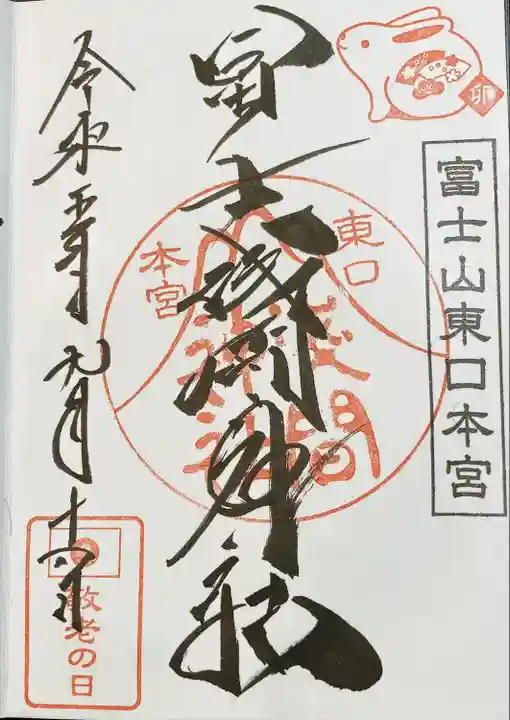 卯
富士山東口本宮
冨士浅間神社
東口
本宮
浅間
神社
令和五年九月十八日
敬老の日